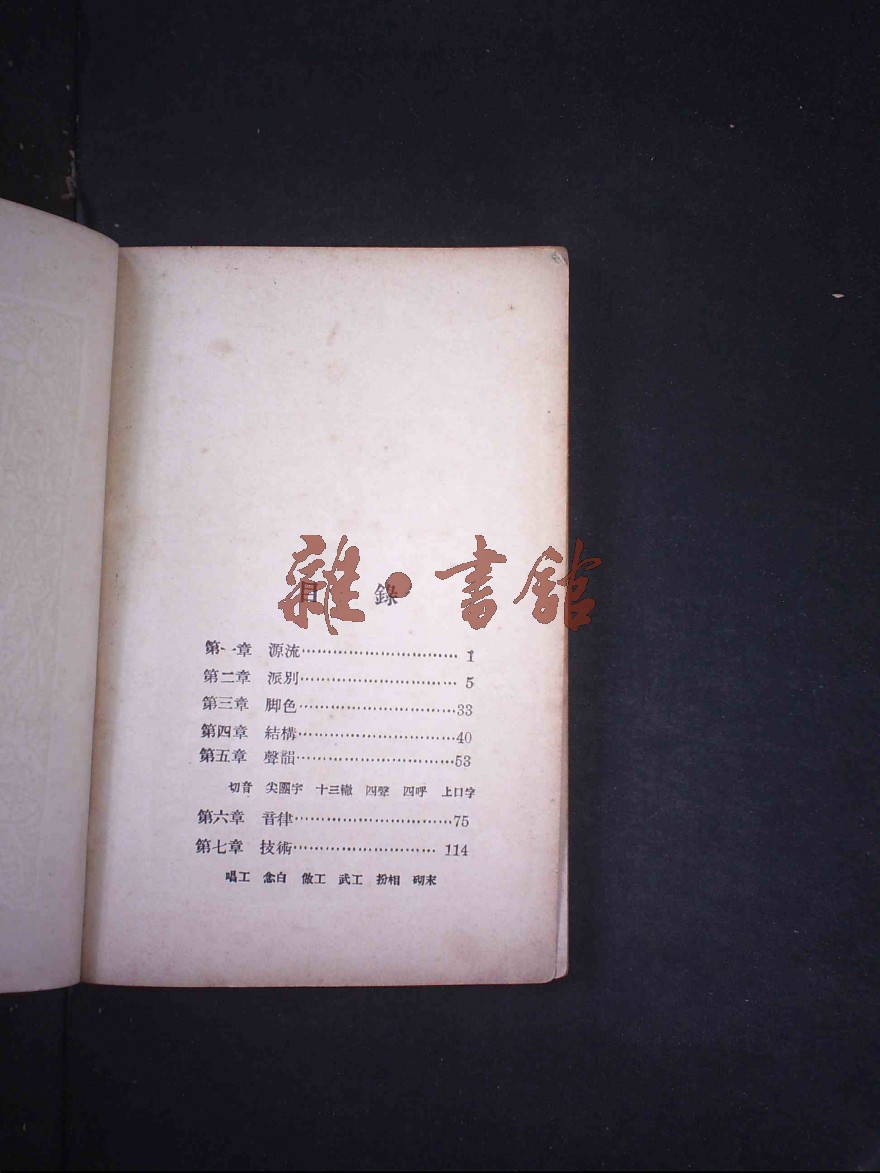 雜·書館
目錄
第一章 源流…………………………1
第二章 派別…………………………5
第三章 脚色…………………………33
第四章 結構…………………………40
第五章 聲韻…………………………53
切音 尖團字 十三轍 四聲 四呼 上口字
第六章 音律…………………………75
第七章 技術…………………………114
唱工 念白 做工 武工 扮相 砌末